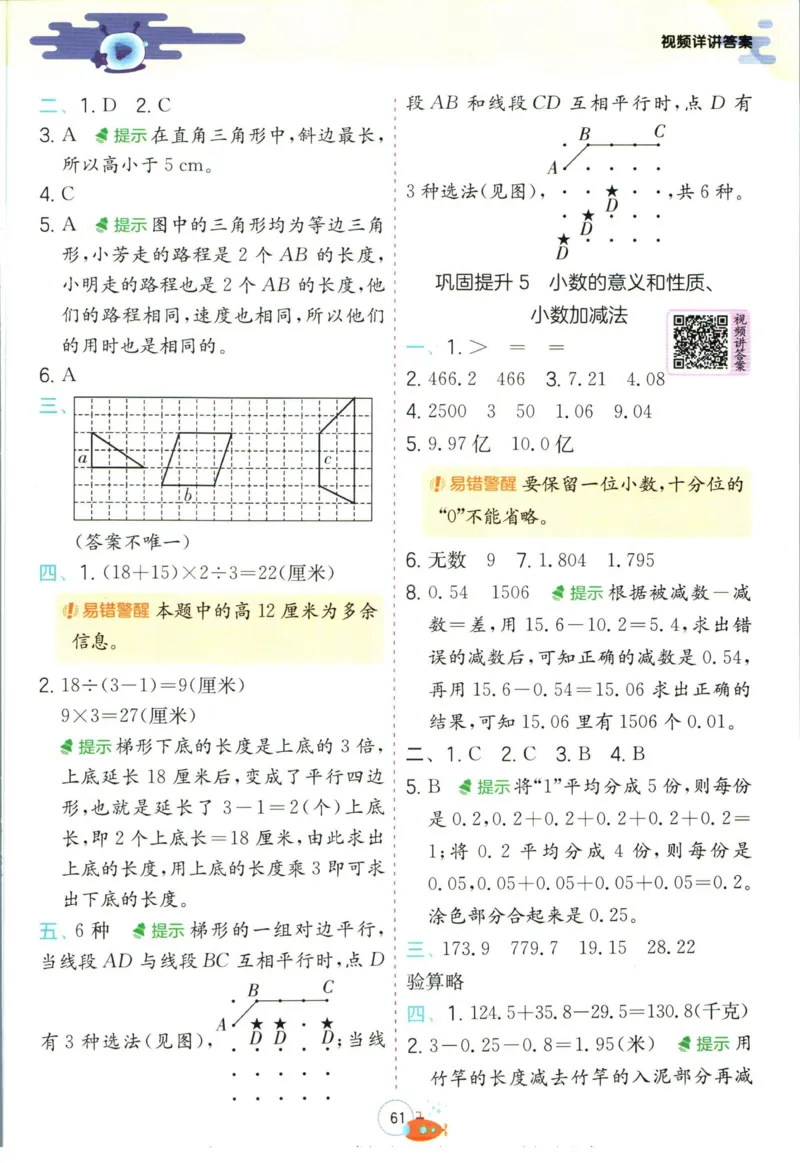 视频详讲答案
二、1. D 2. C
3. A 提示 在直角三角形中,斜边最长,
所以高小于 5 cm。
4. C
5. A 提示 图中的三角形均为等边三角
形,小芳走的路程是 2 个 AB 的长度,
小明走的路程也是 2 个 AB 的长度,他
们的路程相同,速度也相同,所以他们
的用时也是相同的。
6. A
三、
a
b
c
(答案不唯一)
四、1. (18+15)×2÷3=22(厘米)
易错警醒 本题中的高 12 厘米为多余
信息。
2. 18÷(3-1)=9(厘米)
9×3=27(厘米)
提示 梯形下底的长度是上底的 3 倍,
上底延长 18 厘米后,变成了平行四边
形,也就是延长了 3-1=2(个)上底
长,即 2 个上底长=18 厘米,由此求出
上底的长度,用上底的长度乘 3 即可求
出下底的长度。
五、6 种 提示 梯形的一组对边平行,
当线段 AD 与线段 BC 互相平行时,点 D
B C
A
有 3 种选法(见图), D D D ;当线
段 AB 和线段 CD 互相平行时,点 D 有
B C
A
3 种选法(见图), ,共 6 种。
D
D
D
巩固提升 5 小数的意义和性质、
小数加减法
视频讲答案
一、1. > = =
2. 466.2 466 3. 7.21 4.08
4. 2500 3 50 1.06 9.04
5. 9.97 亿 10.0 亿
易错警醒 要保留一位小数,十分位的
“0”不能省略。
6. 无数 9 7. 1.804 1.795
8. 0.54 1506 提示 根据被减数-减
数=差,用 15.6-10.2=5.4,求出错
误的减数后,可知正确的减数是 0.54,
再用 15.6-0.54=15.06 求出正确的
结果,可知 15.06 里有 1506 个 0.01。
二、1. C 2. C 3. B 4. B
5. B 提示 将“1”平均分成 5 份,则每份
是 0.2,0.2+0.2+0.2+0.2+0.2=
1;将 0.2 平均分成 4 份,则每份是
0.05,0.05+0.05+0.05+0.05=0.2。
涂色部分合起来是 0.25。
三、173.9 779.7 19.15 28.22
验算略
四、1. 124.5+35.8-29.5=130.8(千克)
2. 3-0.25-0.8=1.95(米) 提示 用
竹竿的长度减去竹竿的入泥部分再减
61